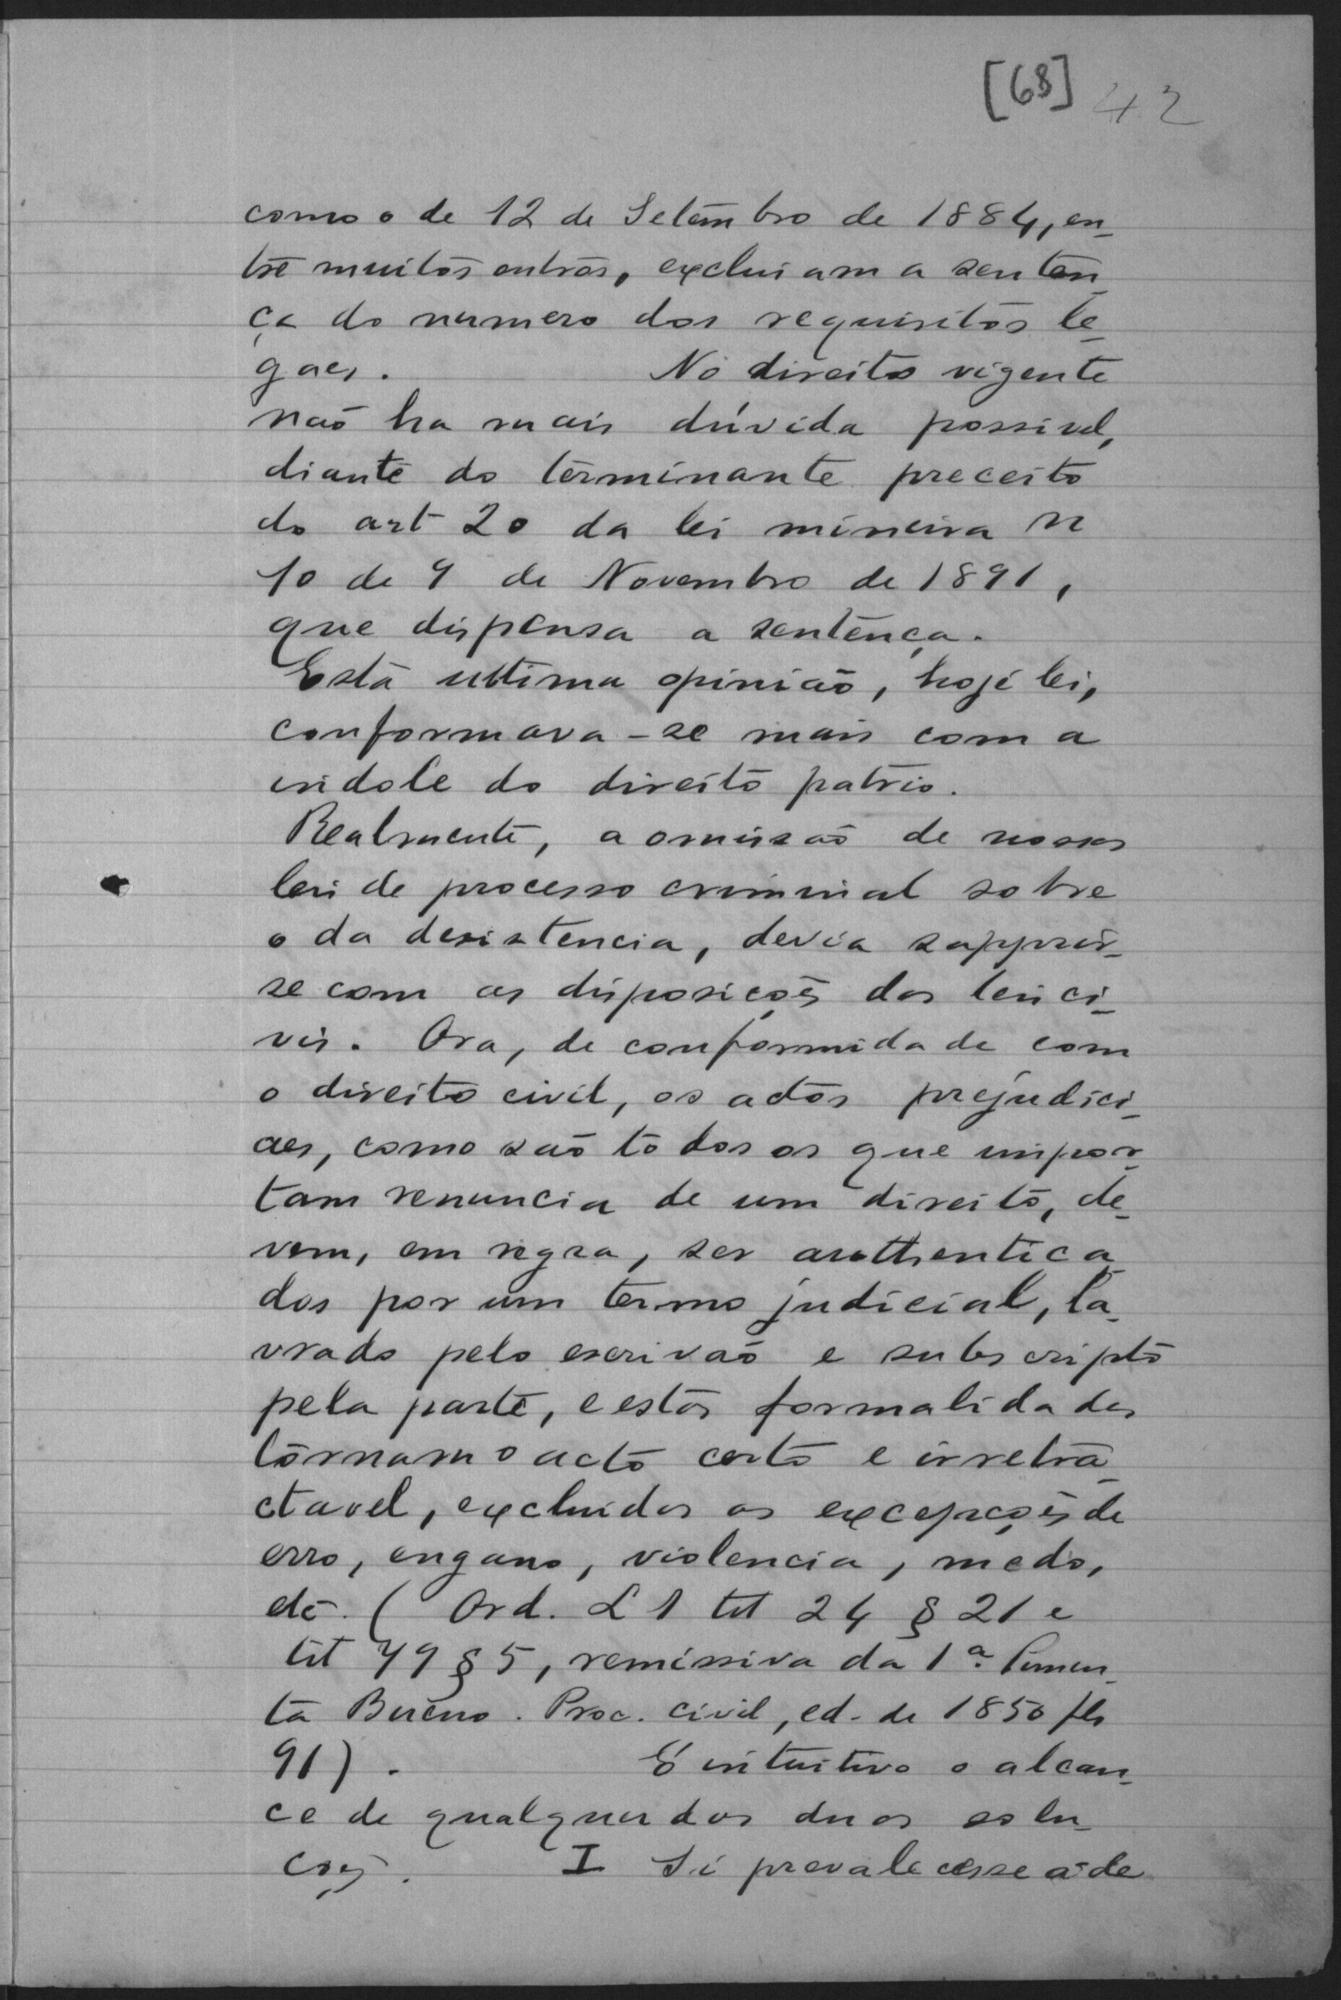 [68] 42
como o de 12 de Setembro de 1884, en-
tre muitos outros, excluiam a senten-
ça do numero dos requisitos le-
gaes. No direito vigente
não ha mais dúvida possivel,
diante do terminante preceito
do art 20 da lei mineira n
10 de 9 de Novembro de 1891,
que dispensa a sentença.
Esta ultima opinião, hoje lei,
conformava-se mais com a
indole do direito patrio.
Realmente, a omissão de nossas
leis de processo criminal sobre
o da desistencia, devia supprir-
se com as disposições das leis ci-
vis. Ora, de conformidade com
o direito civil, os actos prejudici-
aes, como são todos os que impor-
tam renuncia de um direito, de-
vem, em regra, ser authentica-
dos por um termo judicial, la-
vrado pelo escrivão e subscripto
pela parte, e estas formalidades
tornam o acto certo e irretra-
ctavel, excluidas as excepções de
erro, engano, violencia, medo,
etc. (Ord. L 1 tit 24 § 21 e
tit 79 § 5, remissiva da 1ª. Pimen-
ta Bueno. Proc. civil, ed. de 1850 fls
91). É intuitivo o alcan-
ce de qualquer das duas solu-
ções. I Si prevalecesse a de